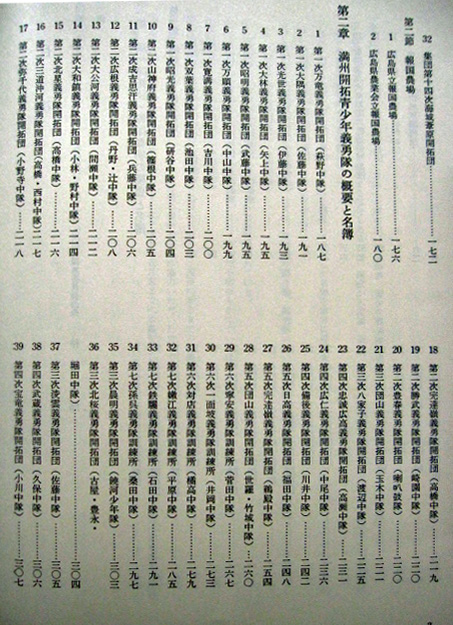 32 集団第十四次海城蓍原開拓団……一七二
第二節 報国農場
1 広島県立報国農場……一七六
2 広島県農業会立報国農場……一八〇
第二章 満州開拓青少年義勇隊の概要と名簿
1 第一次万竜義勇隊開拓団（萩野中隊）……一八七
2 第一次大隅義勇隊開拓団（佐藤中隊）……一九一
3 第一次光世義勇隊開拓団（伊藤中隊）……一九三
4 第一次大林義勇隊開拓団（矢上中隊）……一九五
5 第一次昭明義勇隊開拓団（武藤中隊）……一九五
6 第一次万順義勇隊開拓団（中山中隊）……一九九
7 第一次寛満義勇隊開拓団（吉川中隊）……二〇〇
8 第一次双葉義勇隊開拓団（池田中隊）……二〇三
9 第一次昭光義勇隊開拓団（研谷中隊）……二〇四
10 第二次山神府義勇隊開拓団（籠根中隊）……二〇五
11 第二次成吉思汗義勇隊開拓団（兵藤中隊）……二〇六
12 第二次広根義勇隊開拓団（丹野・辻中隊）……二〇八
13 第二次大公河義勇隊開拓団（間瀬中隊）……二一二
14 第二次大和鎮義勇隊開拓団（小林・野村中隊）……二一四
15 第二次北星義勇隊開拓団（高橋中隊）……二一六
16 第二次三道沖河義勇隊開拓団（高橋・西村中隊）二一七
17 第二次弥千代義勇隊開拓団（小野寺中隊）……二一八
18 第二次完達嶺義勇隊開拓団（高橋中隊）……二一九
19 第二次勝武義勇隊開拓団（崎園中隊）……二二〇
20 第二次豊幸義勇隊開拓団（喇叭鼓隊）……二二〇
21 第三次団山義勇隊開拓団（玉木中隊）……二二一
22 第三次八家子義勇隊開拓団（渡辺中隊）……二二五
23 第四次忠誠広高義勇隊開拓団（高瀬中隊）……二三一
24 第四次広仁義勇隊開拓団（中尾中隊）……二三六
25 第四次備後義勇隊開拓団（川井中隊）……二四二
26 第五次日高義勇隊開拓団（福田中隊）……二四八
27 第五次完達嶺義勇隊開拓団（鵜殿中隊）……二五四
28 第五次団山義勇隊開拓団（世羅・竹城中隊）……二六〇
29 第六次寧安義勇隊訓練所（菅田中隊）……二六七
30 第六次一面坡義勇隊訓練所（井岡中隊）……二七三
31 第六次対店義勇隊訓練所（橘高中隊）……二七九
32 第七次嫩江義勇隊訓練所（平原中隊）……二八五
33 第七次鉄驪義勇隊訓練所（石田中隊）……二九一
34 第七次孫呉義勇隊訓練所（桑田中隊）……二九七
35 第三次晨明義勇隊開拓団（饒河少年隊）……三〇三
36 第三次北桜義勇隊開拓団（古屋・豊永・
堀田中隊）……三〇四
37 第三次凌雲義勇隊開拓団（佐藤中隊）……三〇五
38 第四次武蔵義勇隊開拓団（久保中隊）……三〇六
39 第四次宝竜義勇隊開拓団（小川中隊）……三〇七